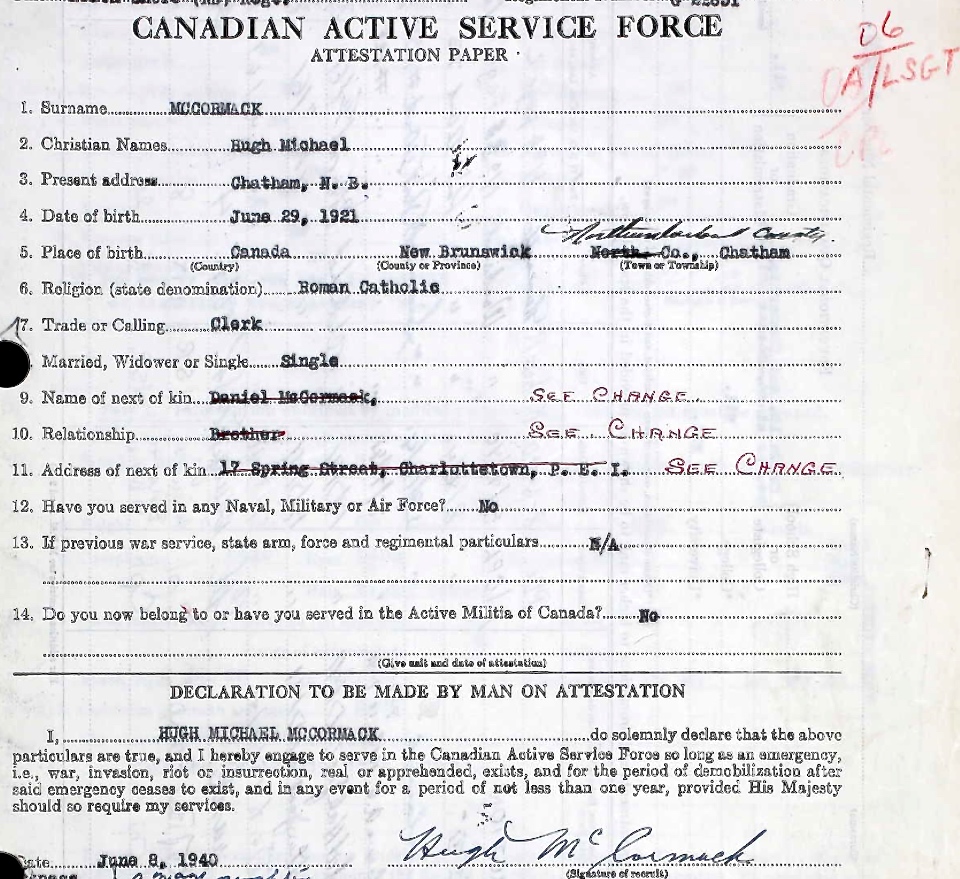 CANADIAN ACTIVE SERVICE FORCE
ATTESTATION PAPER
D6
OA/LSGT
1. Surname MCCORMACK
2. Christian Names Hugh Michael
3. Present address Chatham, N. B.
4. Date of birth June 29, 1921
Northumberland County.
5. Place of birth Canada New Brunswick North. Co., Chatham
(Country) (County or Province) (Town or Township)
6. Religion (state denomination) Roman Catholic
7. Trade or Calling Clerk
. Married, Widower or Single Single
9. Name of next of kin Daniel McCormack, SEE CHANGE
10. Relationship Brother SEE CHANGE
11. Address of next of kin 17 Spring Street, Charlottetown, P. E. I. SEE CHANGE
12. Have you served in any Naval, Military or Air Force? No
13. If previous war service, state arm, force and regimental particulars N/A
14. Do you now belong to or have you served in the Active Militia of Canada? No
(Give unit and date of attestation)
DECLARATION TO BE MADE BY MAN ON ATTESTATION
I, HUGH MICHAEL MCCORMACK do solemnly declare that the above
particulars are true, and I hereby engage to serve in the Canadian Active Service Force so long as an emergency,
i.e., war, invasion, riot or insurrection, real or apprehended, exists, and for the period of demobilization after
said emergency ceases to exist, and in any event for a period of not less than one year, provided His Majesty
should so require my services.
Date June 8, 1940 Hugh McCormack
(Signature of recruit)